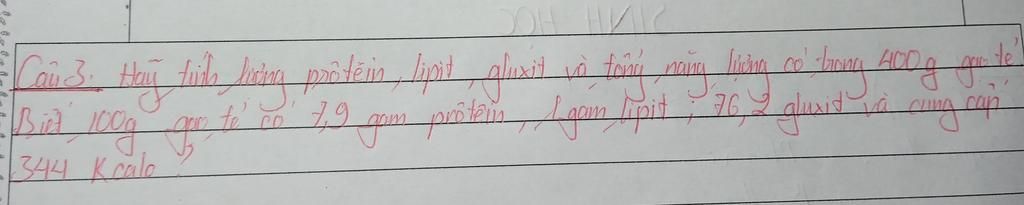 SINH HỌC
Câu 3. Hãy tính lượng prôtêin, lipit, gluxit và tổng năng lượng có trong 400g gạo tẻ
Biết 100g gạo tẻ có 7,9 gam prôtêin, 1 gam lipit; 76,2 gluxit và cung cấp
344 Kcalo